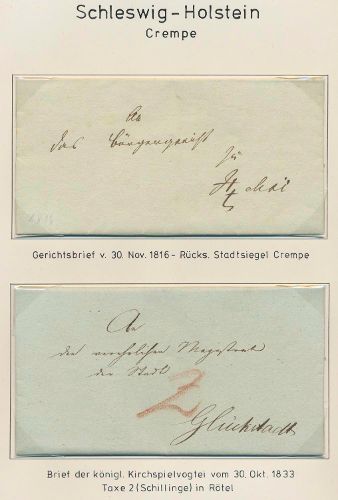 Schleswig-Holstein
Crempe
An
das
zu
Gerichtsbrief v. 30. Nov. 1816 - Rücks. Stadtsiegel Crempe
An
den Magistrat
der Stadt
2
Glückstadt
Brief der königl. Kirchspielvogtei vom 30. Okt. 1833
Taxe 2 (Schillinge) in Rötel